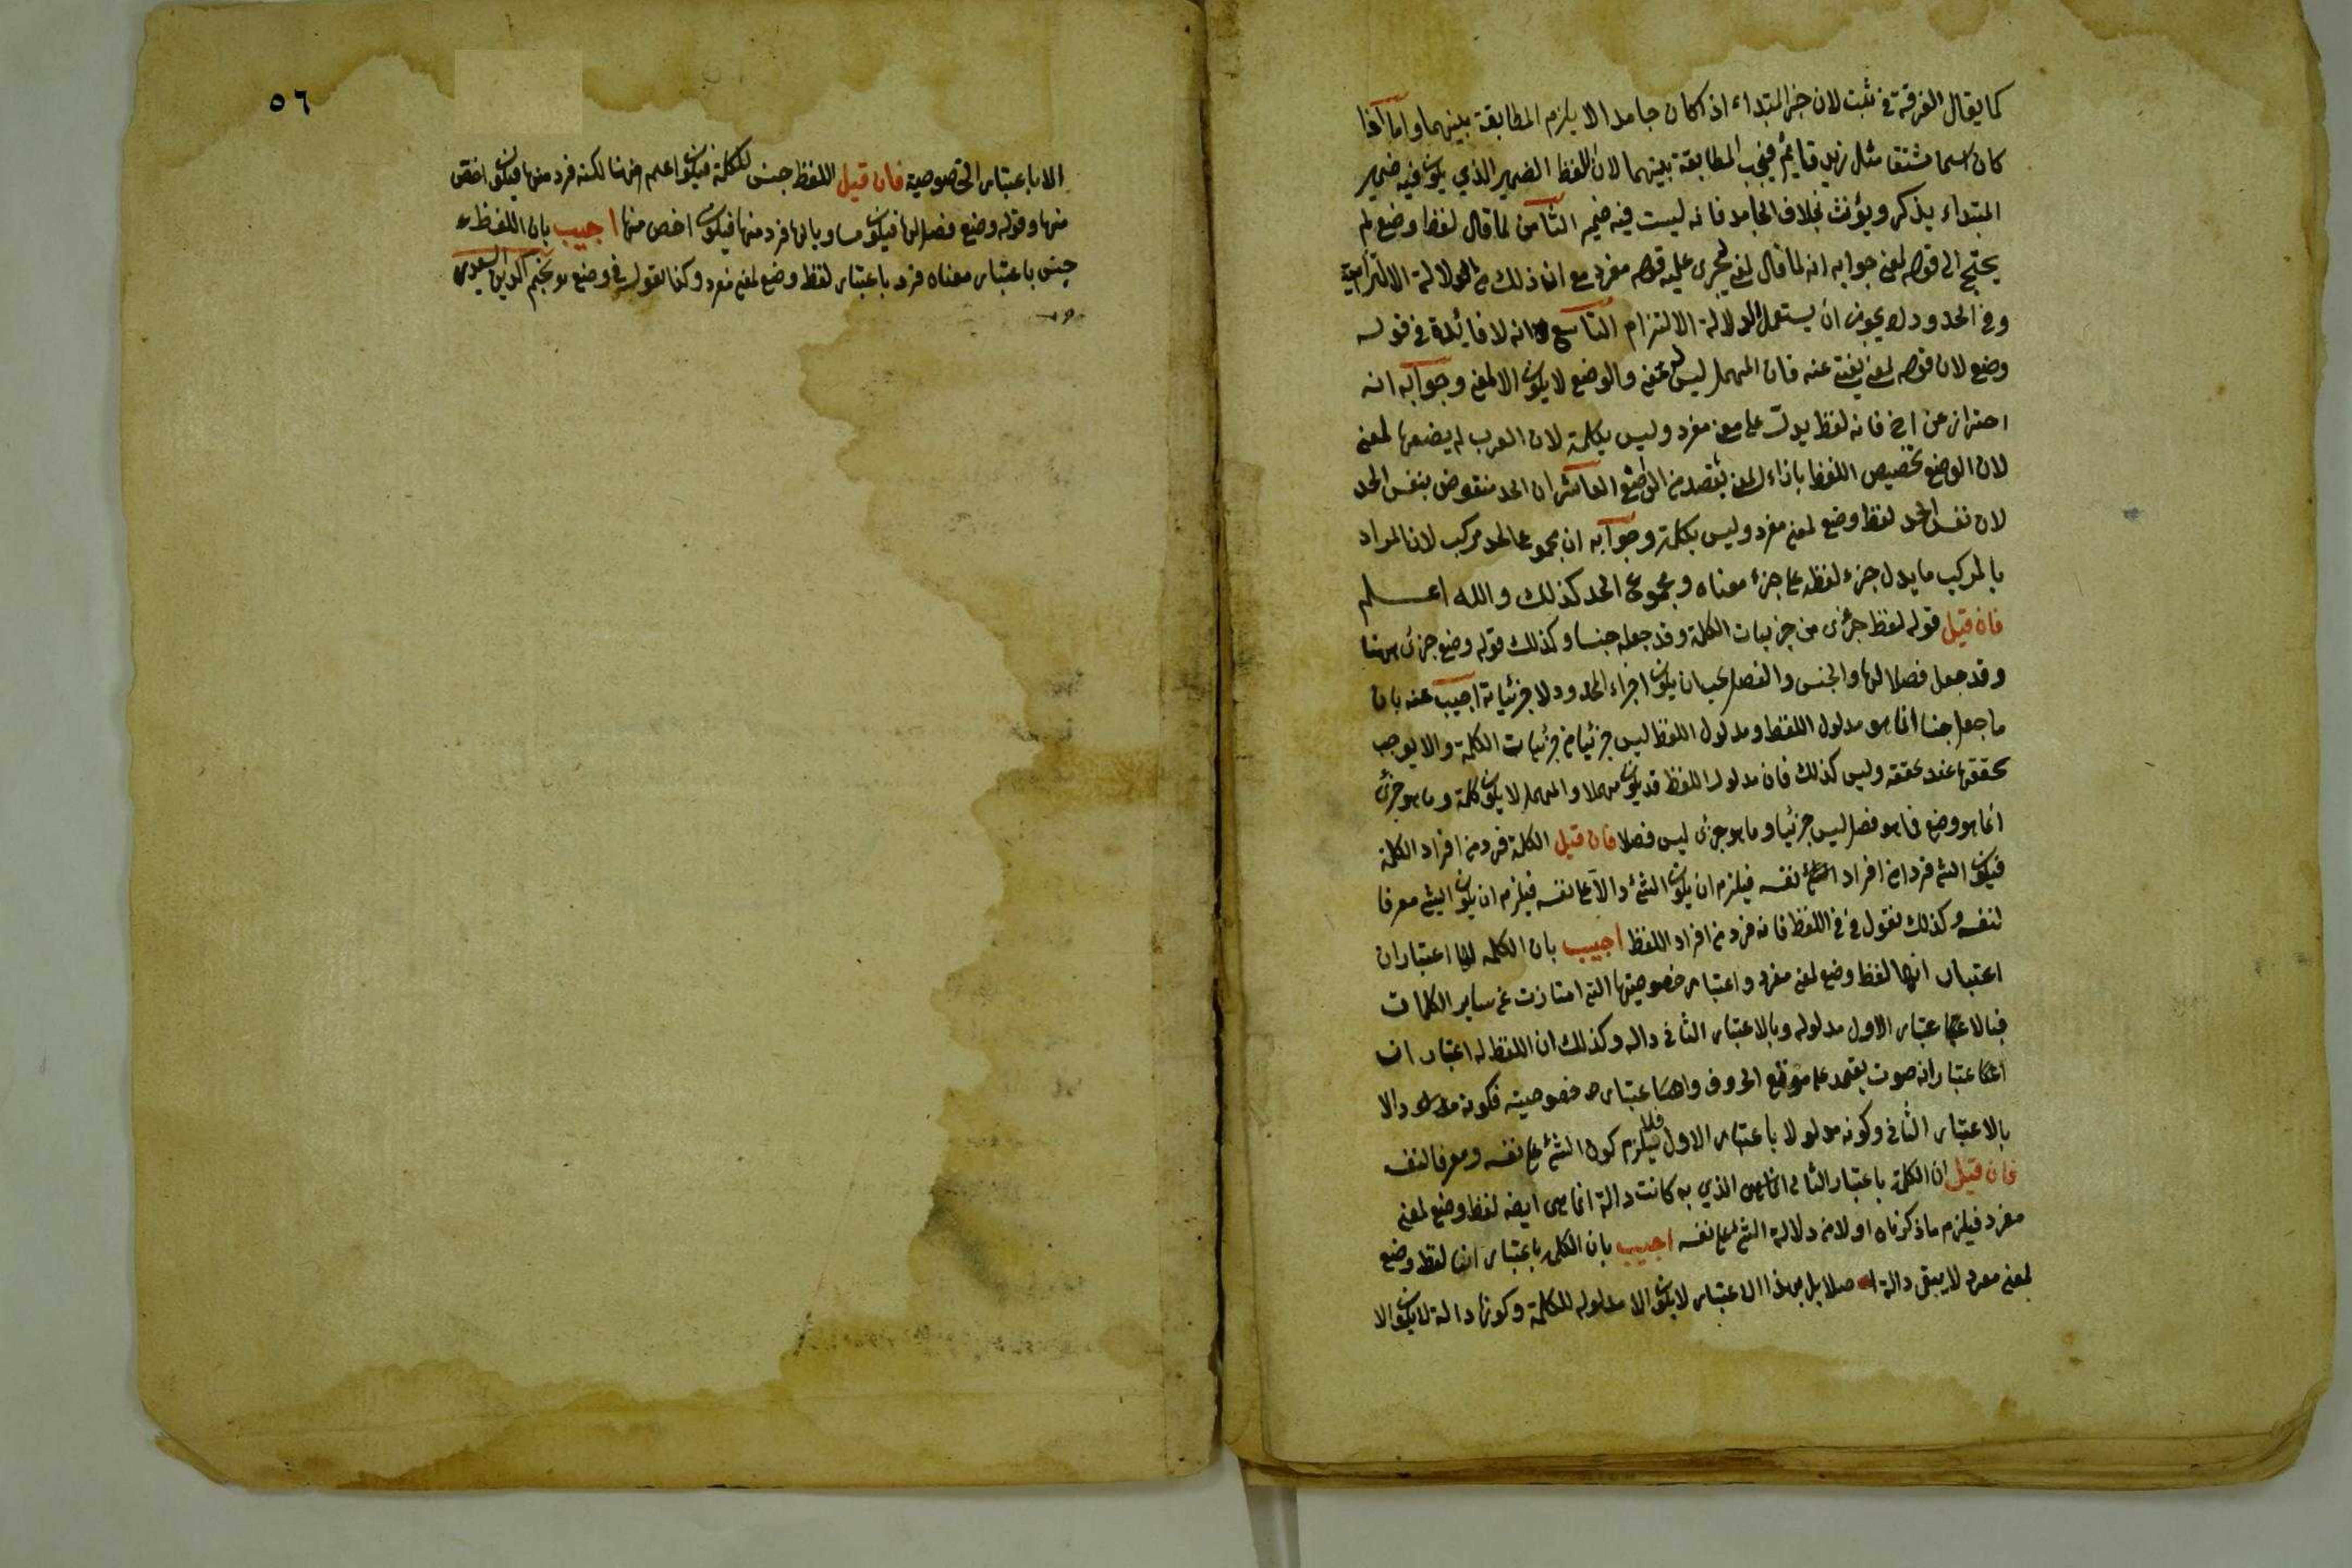 كما يقال الغرفة في ثبت لان خبر المبتداء اذا كان جامدا لا يلزم المطابقة بينهما واما اذا
كان اسما مشتقا مثل زيد قايم فيجب المطابقة بينهما لان اللفظ الضمير الذي يكون فيه ضمير
المبتداء يذكر ويؤنث بخلاف الجامد فانه ليست فيه ضمير الثامن لما قال لفظ وضع لم
يحتج الى قوله لمعنى جوابه انه لما قال لمعنى يجرى عليه قوله مفرد مع ان ذلك من الدلالة الالتزامية
وفي الحدود لا يجوز ان يستعمل الدلالة الالتزام التاسع انه لا فائدة في قوله
وضع لان قوله لمعنى يغني عنه فان المهمل ليس له معنى والوضع لا يكون الا لمعنى وجوابه انه
احتراز عن اخ فانه لفظ يدل على معنى مفرد وليس بكلمة لان العرب لم يضعها لمعنى
لان الوضع تخصيص اللفظ بازاء المعنى بقصد من الواضع العاشر ان الحد منقوض بنفس الحد
لان نفس الحد لفظ وضع لمعنى مفرد وليس بكلمة وجوابه ان مجموع الحد مركب لان المراد
بالمركب ما يدل جزء لفظه على جزء معناه ومجموع الحد كذلك والله اعلم
فان قيل قوله لفظ جزئى من جزييات الكلمة وقد جعله جنسا وكذلك قوله وضع جزئى منها
وقد جعل فصلا لها والجنس والفصل يجب ان يكون اجزاء المحدود لا جزئياته اجيب عنه بان
ما جعل جنسا انما هو مدلول اللفظ ومدلول اللفظ ليس جزئيا من جزئيات الكلمة والا يوجب
تحققها عند تحققه وليس كذلك فان مدلول اللفظ قد يكون مهملا والمهمل لا يكون كلمة وما هو جزئى
انما هو وضع فما هو فصل ليس جزئيا وما هو جزئى ليس فصلا فان قيل الكلمة فرد من افراد الكلمة
فيكون الشئ فردا من افراد نفسه فيلزم ان يكون الشئ دالا على نفسه فيلزم ان يكون الشئ معرفا
لنفسه وكذلك نقول في اللفظ فانه فرد من افراد اللفظ اجيب بان الكلمه لها اعتباران
اعتبار انها لفظ وضع لمعنى مفرد واعتبار خصوصيتها التي امتازت عن ساير الكلمات
فبالاعتبار الاول مدلوله وبالاعتبار الثاني داله وكذلك ان اللفظ له اعتباران
اعتبار انه صوت يعتمد على موقع الحروف واعتبار خصوصيته فكونه دالا
بالاعتبار الثاني وكونه مدلولا باعتبار الاول فلا يلزم كون الشئ على نفسه ومعرفا لنفسه
فان قيل ان الكلمة باعتبار الثاني الخاص الذي به كانت دالة انما هى ايضه لفظ وضع لمعنى
مفرد فيلزم ما ذكرناه اولا من دلالة الشئ على نفسه اجيب بان الكلمه باعتبار انها لفظ وضع
لمعنى مفرد لا يبقى دالة اصلا بل بهذا الاعتبار لا يكون الا مدلوله للكلمة وكونها دالة لا يكون الا
٥٦
الا باعتبار الخصوصية فان قيل اللفظ جنس للكلمة فيكون اعم منها لكنه فرد منها فيكون اخص
منها وقوله وضع فصل لها فيكون مساويا لها فرد منها فيكون اخص منها اجيب بان اللفظ
جنس باعتبار معناه فرد باعتبار لفظ وضع لمعنى مفرد وكذا نقول في وضع نجم الدين السعيدى